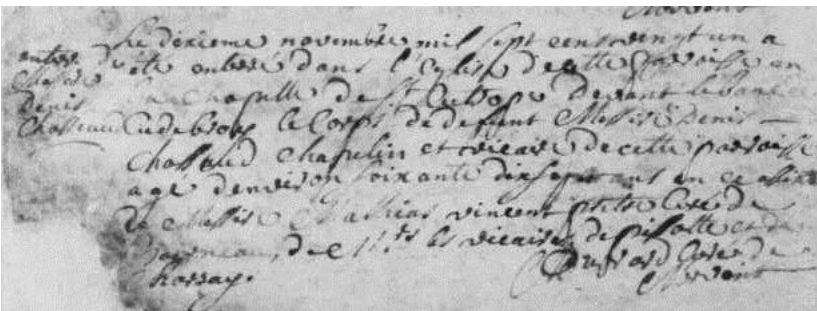 Le dixieme novembre mil sept cens vingt un a
eté enteré dans l'Eglise de cette paroisse en
la chapelle de St devant le banc
le corps de defunt Messire Denis
Chasseaud chapelin et vicaire de cette paroisse
agé d'environ soixante dix sept ans en
de Messire Mathias vincent ptre Curé de
de Mrs les vicaires de pissotte et de
Charzay.
enterre
Messire
Denis
Chasseau
Curé de
Mervent